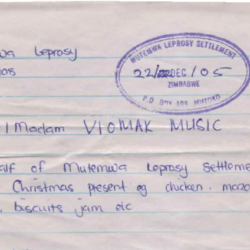 wa Leprosy
MUTEMWA LEPROSY SETTLEMENT
22 DEC / 05
ZIMBABWE
P.O BOX
/ Madam VIOMAK MUSIC
alf of Mutemwa Leprosy Settleme
Christmas present eg chicken
biscuits jam etc